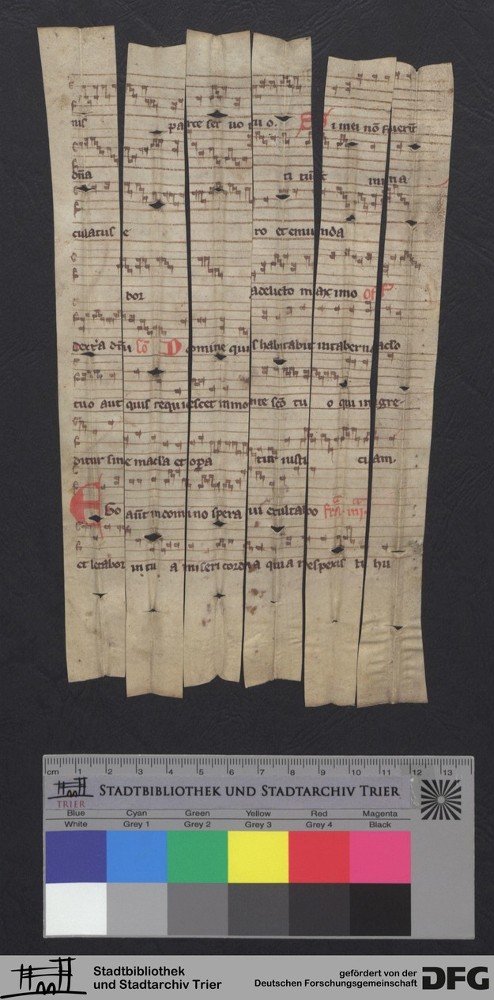 nis parce ser uo tu o. S i mei nō fuerīt
dn̄a ti tūc īma
culatus e ro et emunda
bor adelicto maximo off
dextera dn̄i cō Domine quis habitabit intabernaclo
tuo aut quis requiescet inmonte scō tu o qui ingre-
ditur sine macla et opa tur iusti ciam.
Ego aūt indomino spera ui exultabo
et letabor in tu a misericordia quia respexis ti hu
cm 1 2 3 4 5 6 7 8 9 10 11 12 13
TRIER STADTBIBLIOTHEK UND STADTARCHIV TRIER
Blue Cyan Green Yellow Red Magenta
White Grey 1 Grey 2 Grey 3 Grey 4 Black
Stadtbibliothek
und Stadtarchiv Trier
gefördert von der
Deutschen Forschungsgemeinschaft
DFG